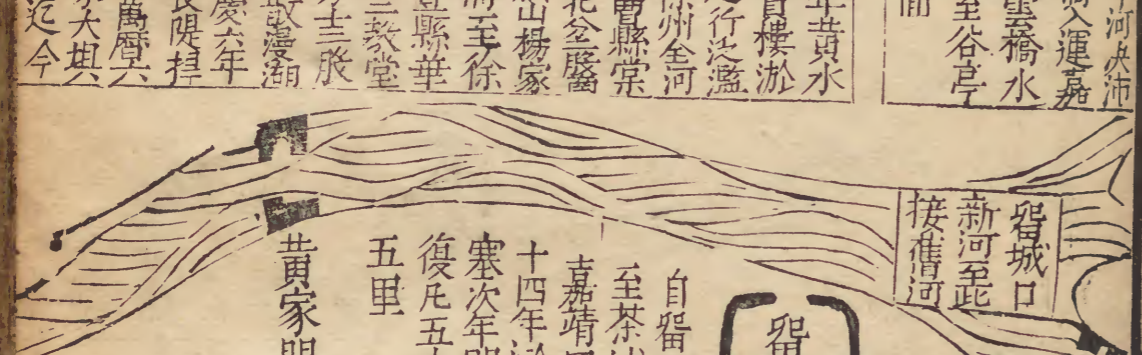 河决沛
入運嘉
雲橋水
至谷亭
面
年黄水
樓淤
行泛濫
徐州全河
曹縣棠
北岔
山楊家
至徐
豊縣華
三教堂
士三股
散漫湖
慶六年
長隄捍
萬曆六
大
迄今
留城口
新河至此
接舊河
自留
至茶
嘉靖
十四年淤
塞次年開
復凡五
五里
留
黄家閘